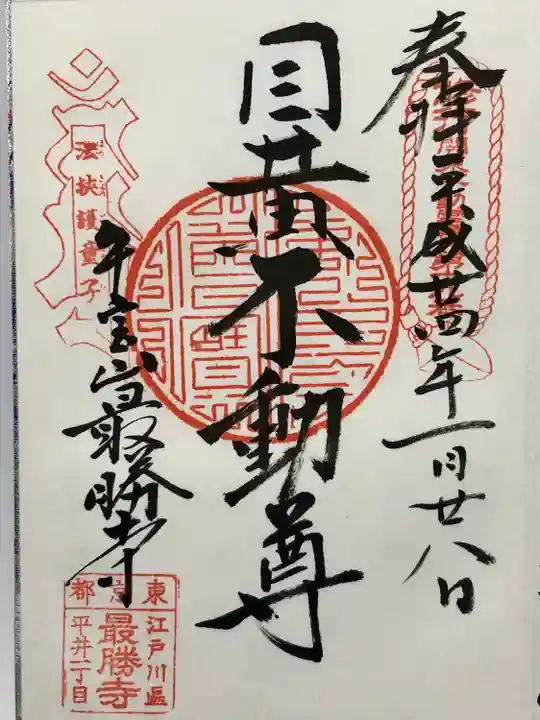 奉拝 平成廿四年一月廿八日
目黄不動尊
牛宝山最勝寺
法挾護童子
東京都
江戸川區
最勝寺
平井一丁目